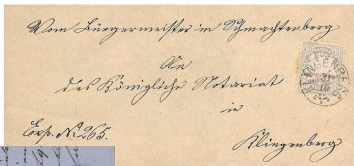 Vom Bürgermeister in Schmachtenberg
An
das Königliche Notariat
in
Klingenberg
Exp. No 265.